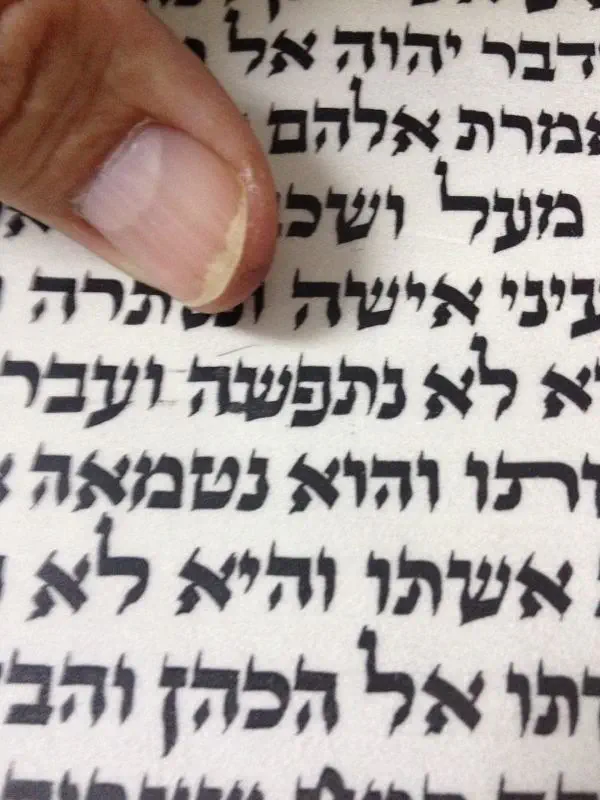 דבר יהוה אל
אמרת אלהם
מעל ושכ
עיני אישה ונסתרה
א לא נתפשה ועבר
תו והוא נטמאה
אשתו והיא לא
תו אל הכהן והבי